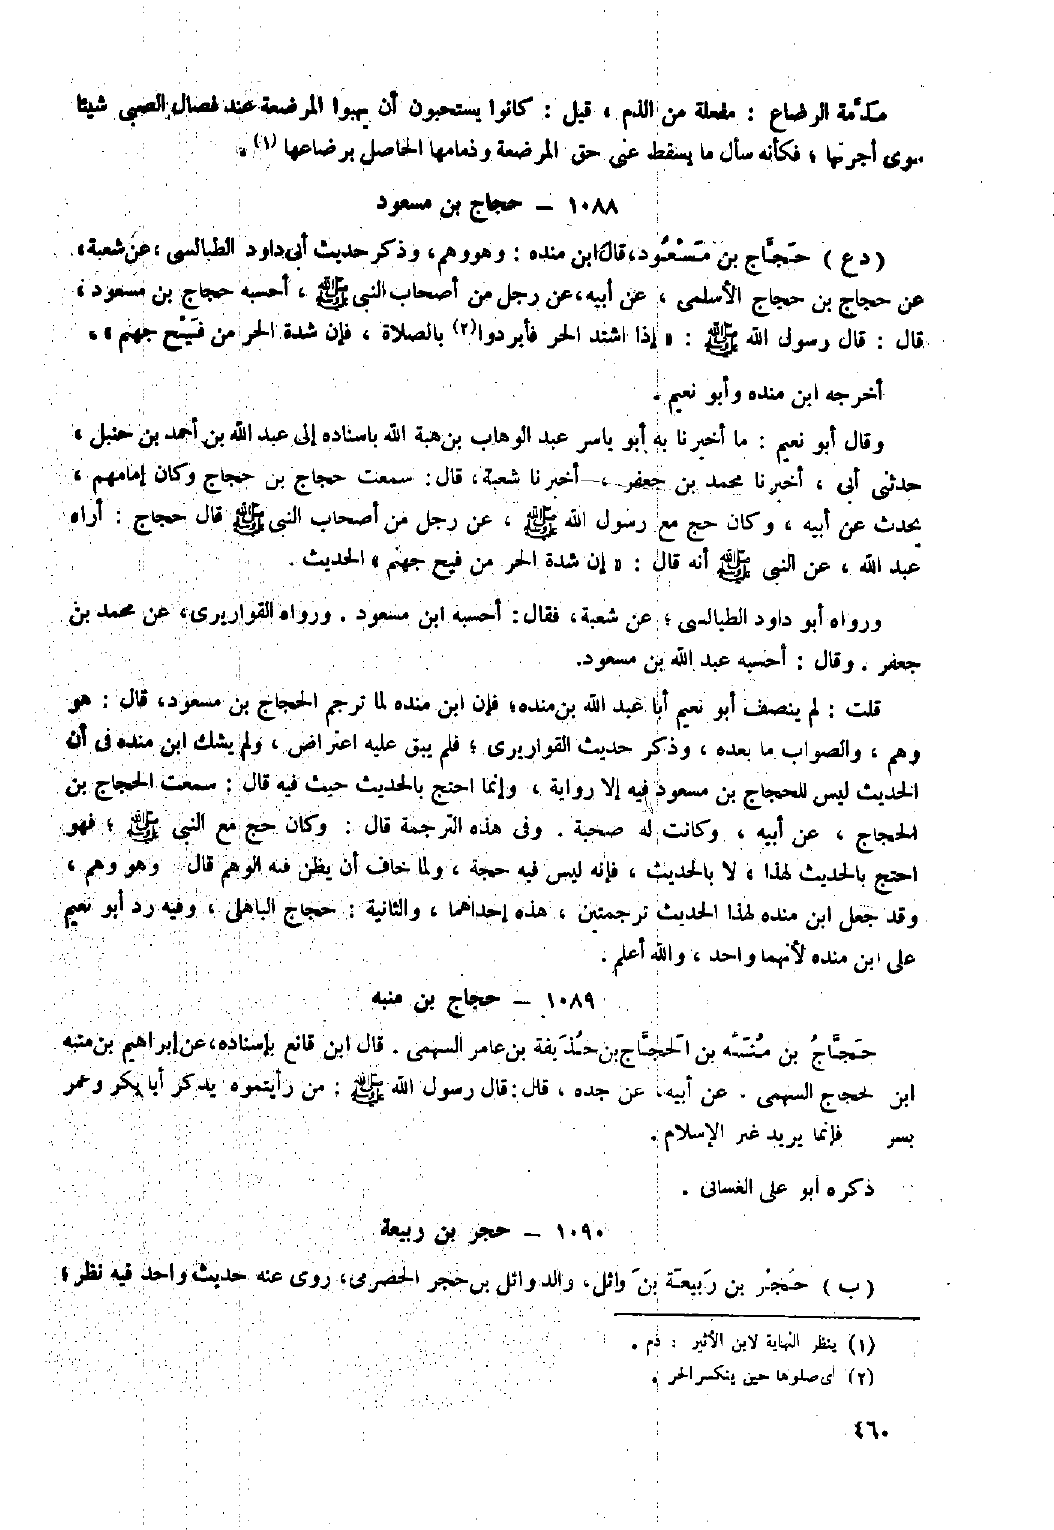 مذمَّة الرضاع : مفعلة من الذم ، قيل : كانوا يستحبون أن يهبوا المرضعة عند فصال الصبي شيئا
سوى أجرتها ؛ فكأنه سأل ما يسقط عني حق المرضعة وذمامها الحاصل برضاعها (١) .
١٠٨٨ – حجاج بن مسعود
( دع ) حَجَّاج بن مَسْعُود، قال ابن منده : وهو وهم، وذكر حديث أبي داود الطيالسي، عن شعبة،
عن حجاج بن حجاج الأسلمي ، عن أبيه، عن رجل من أصحاب النبي ﷺ ، أحسبه حجاج بن مسعود ،
قال : قال رسول الله ﷺ : « إذا اشتد الحر فأبردوا (٢) بالصلاة ، فإن شدة الحر من فَيْح جهنم » .
أخرجه ابن منده وأبو نعيم .
وقال أبو نعيم : ما أخبرنا به أبو ياسر عبد الوهاب بن هبة الله باسناده إلى عبد الله بن أحمد بن حنبل ،
حدثني أبي ، أخبرنا محمد بن جعفر ، أخبرنا شعبة، قال : سمعت حجاج بن حجاج وكان إمامهم ،
يحدث عن أبيه ، وكان حج مع رسول الله ﷺ ، عن رجل من أصحاب النبي ﷺ قال حجاج : أراه
عبد الله ، عن النبي ﷺ أنه قال : « إن شدة الحر من فيح جهنم » الحديث .
ورواه أبو داود الطيالسي ؛ عن شعبة، فقال : أحسبه ابن مسعود . ورواه القواريري، عن محمد بن
جعفر . وقال : أحسبه عبد الله بن مسعود.
قلت : لم ينصف أبو نعيم أبا عبد الله بن منده؛ فإن ابن منده لما ترجم الحجاج بن مسعود، قال : هو
وهم ، والصواب ما بعده ، وذكر حديث القواريري ؛ فلم يبق عليه اعتراض ، ولم يشك ابن منده في أن
الحديث ليس للحجاج بن مسعود فيه إلا رواية ، وإنما احتج بالحديث حيث فيه قال : سمعت الحجاج بن
الحجاج ، عن أبيه ، وكانت له صحبة . وفي هذه الترجمة قال : وكان حج مع النبي ﷺ ؛ فهو
احتج بالحديث لهذا ، لا بالحديث ، فإنه ليس فيه حجة ، ولما خاف أن يظن فيه الوهم قال وهو وهم ،
وقد جعل ابن منده لهذا الحديث ترجمتين ، هذه إحداهما ، والثانية : حجاج الباهلي ، وفيه رد أبو نعيم
على ابن منده لأنهما واحد ، والله أعلم .
١٠٨٩ – حجاج بن منبه
حَجَّاجُ بن مُنَبِّه بن الحجَّاج بن حُذَيفة بن عامر السهمي . قال ابن قانع بإسناده، عن إبراهيم بن منبه
ابن لحجاج السهمي . عن أبيه، عن جده ، قال : قال رسول الله ﷺ : من رأيتموه يذكر أبا بكر وعمر
بسر فإنما يريد غير الإسلام .
ذكره أبو علي الغساني .
١٠٩٠ – حجر بن ربيعة
( ب ) حُجْر بن رَبيعَة بن وَائل، والد وائل بن حجر الحضرمي، روى عنه حديث واحد فيه نظر ؛
(١) ينظر النهاية لابن الأثير : ذم .
(٢) أي صلوها حين ينكسر الحر .
٤٦٠